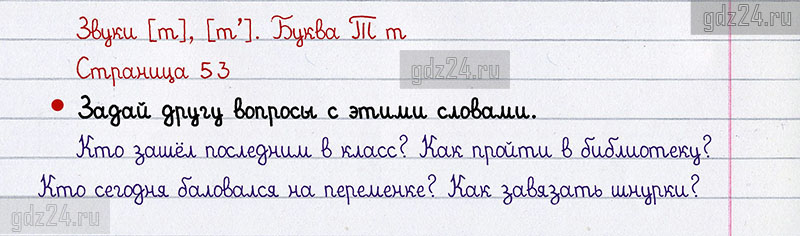 gdz24.ru
Звуки [т], [т’]. Буква Т т
gdz24.ru
Страница 53
• Задай другу вопросы с этими словами.
Кто зашёл последним в класс? Как пройти в библиотеку?
Кто сегодня баловался на переменке? Как завязать шнурки?
gdz24.ru